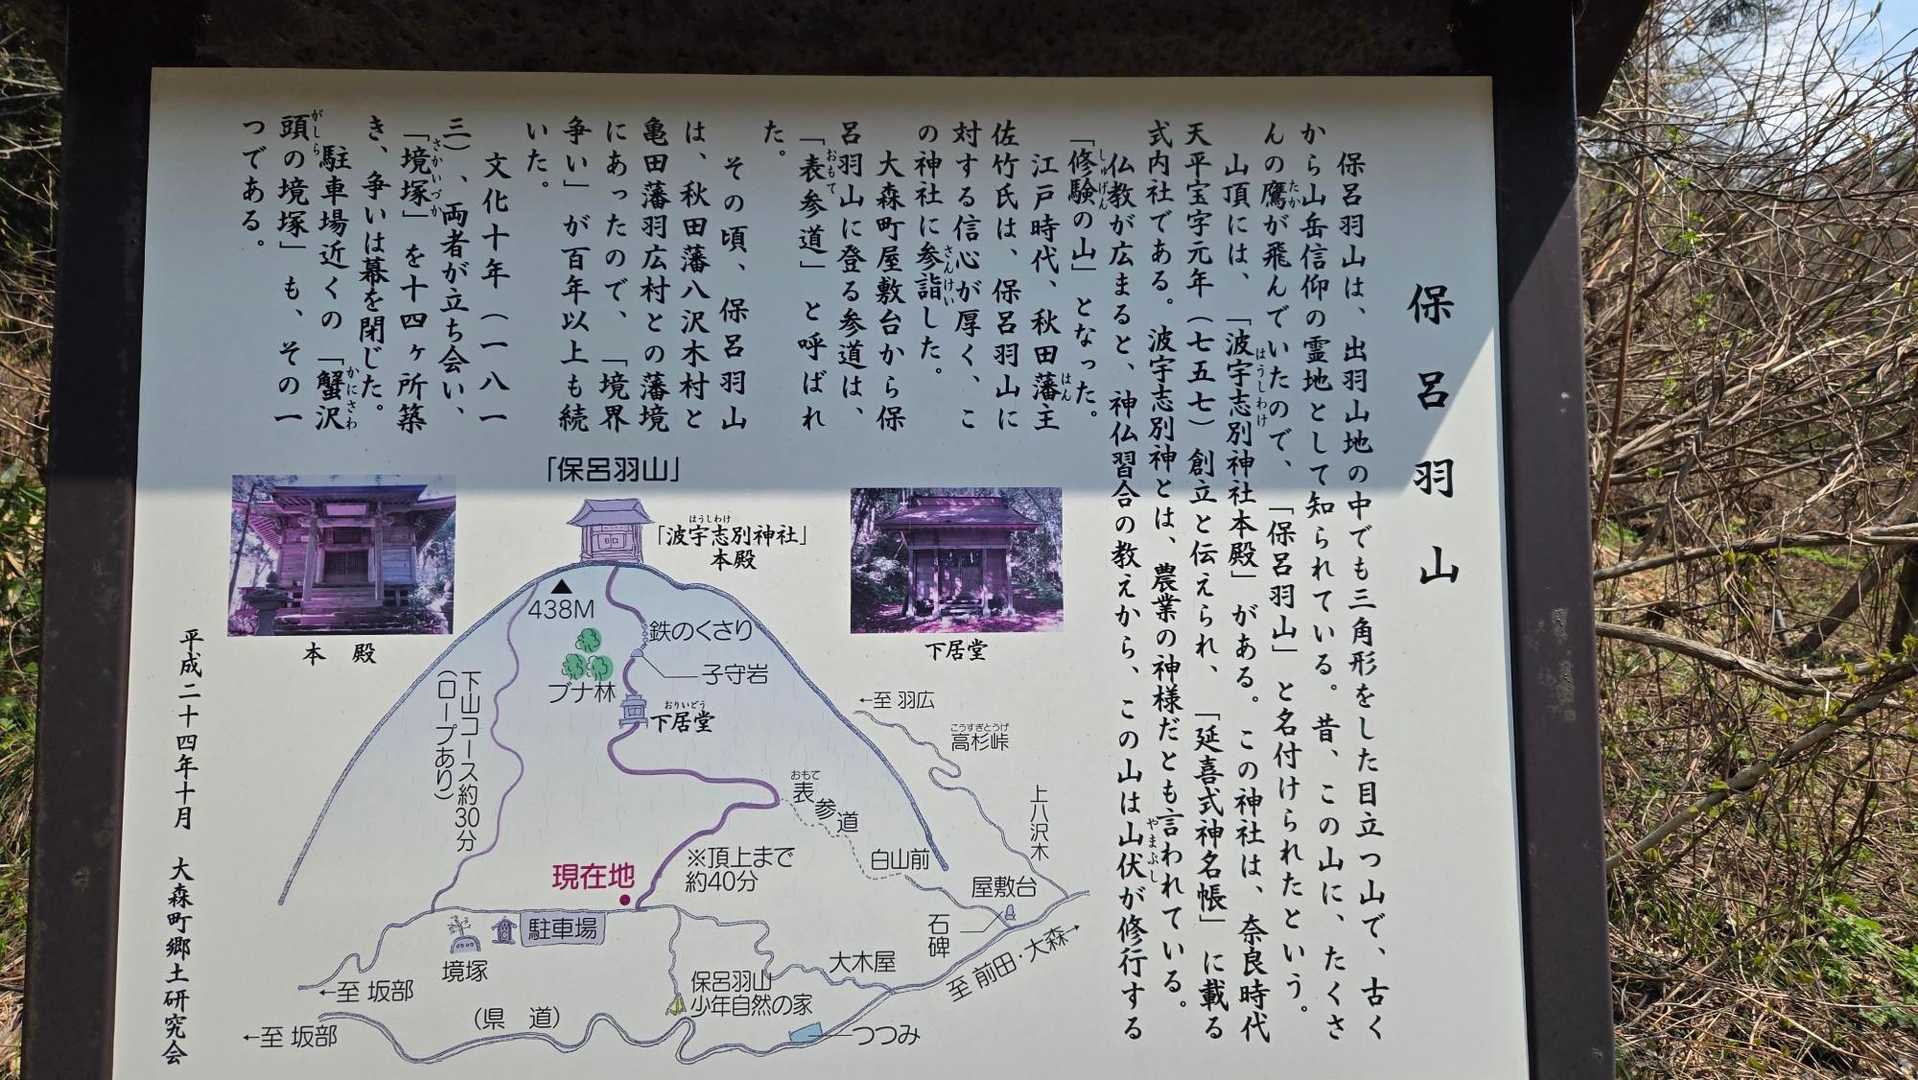 保呂羽山
保呂羽山は、出羽山地の中でも三角形をした目立つ山で、古く
から山岳信仰の霊地として知られている。昔、この山に、たくさ
んの鷹が飛んでいたので、「保呂羽山」と名付けられたという。
たか
山頂には、「波宇志別神社本殿」がある。この神社は、奈良時代
はうしわけ
天平宝字元年（七五七）創立と伝えられ、「延喜式神名帳」に載る
式内社である。波宇志別神とは、農業の神様だとも言われている。
仏教が広まると、神仏習合の教えから、この山は山伏が修行する
やまぶし
「修験の山」となった。
しゅげん
江戸時代、秋田藩主
はん
佐竹氏は、保呂羽山に
対する信心が厚く、こ
の神社に参詣した。
さんけい
大森町屋敷台から保
呂羽山に登る参道は、
「表参道」と呼ばれ
おもて
た。
その頃、保呂羽山
は、秋田藩八沢木村と
亀田藩羽広村との藩境
にあったので、「境界
争い」が百年以上も続
いた。
文化十年（一八一
三）、両者が立ち会い、
「境塚」を十四ヶ所築
さかいづか
き、争いは幕を閉じた。
駐車場近くの「蟹沢
かにさわ
頭の境塚」も、その一
がしら
つである。
「保呂羽山」
はうしわけ
「波宇志別神社」
本殿
438M
鉄のくさり
子守岩
ブナ林
おりいどう
下居堂
下山コース約30分
（ロープあり）
本殿
下居堂
←至 羽広
こうすぎとうげ
高杉峠
上八沢木
おもて
表参道
白山前
屋敷台
石碑
※頂上まで
約40分
現在地
駐車場
境塚
大木屋
至 前田・大森→
保呂羽山
少年自然の家
←至 坂部
（県 道）
←至 坂部
つつみ
平成二十四年十月 大森町郷土研究会